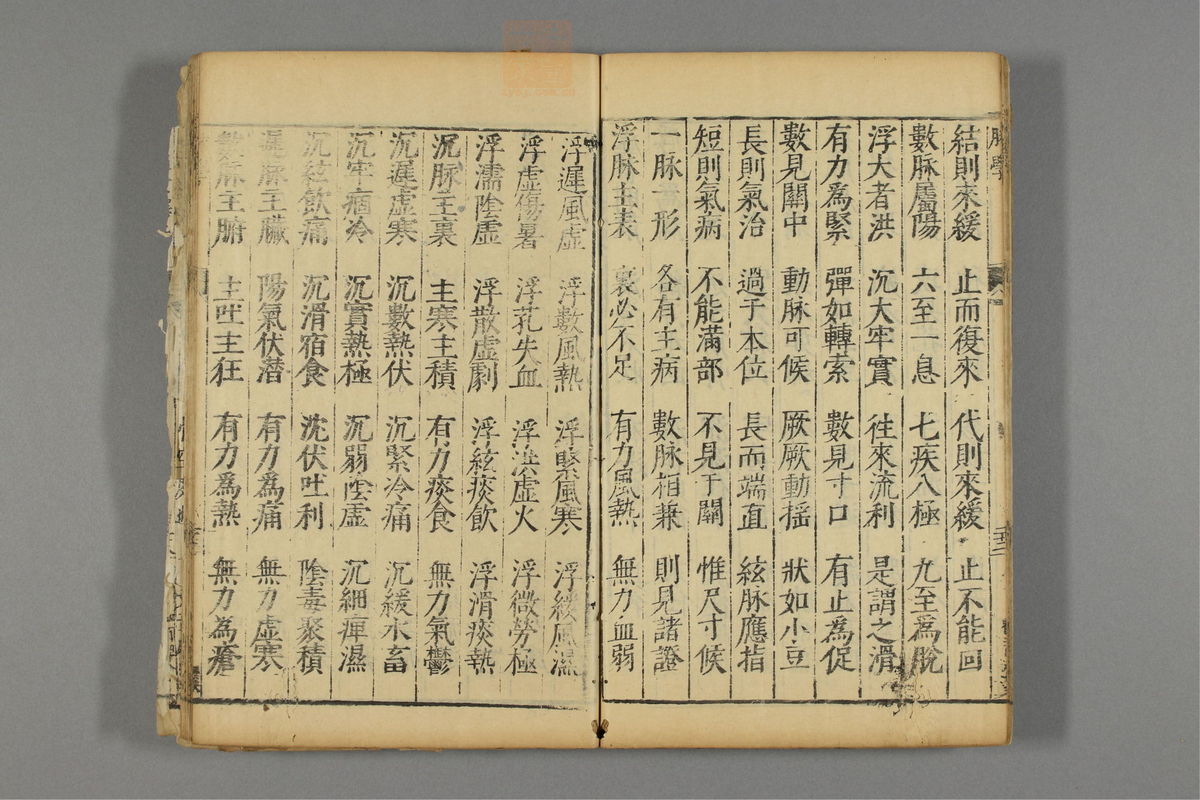 結則來緩 止而復來 代則來緩 止不能回
數脉屬陽 六至一息 七疾八極 九至為脫
浮大者洪 沉大牢實 往來流利 是謂之滑
有力為緊 彈如轉索 數見寸口 有止為促
數見關中 動脉可候 厥厥動搖 狀如小豆
長則氣治 過于本位 長而端直 絃脉應指
短則氣病 不能滿部 不見于關 惟尺寸候
一脉一形 各有主病 數脉相兼 則見諸證
浮脉主表 裏必不足 有力風熱 無力血弱
浮遲風虛 浮數風熱 浮緊風寒 浮緩風濕
浮虛傷暑 浮芤失血 浮洪虛火 浮微勞極
浮濡陰虛 浮散虛劇 浮絃痰飲 浮滑痰熱
沉脉主裏 主寒主積 有力痰食 無力氣鬱
沉遲虛寒 沉數熱伏 沉緊冷痛 沉緩水畜
沉牢痼冷 沉實熱極 沉弱陰虛 沉細痺濕
沉絃飲痛 沉滑宿食 沈伏吐利 陰毒聚積
遲脉主臟 陽氣伏潛 有力為痛 無力虛寒
數脉主腑 主吐主狂 有力為熱 無力為瘡